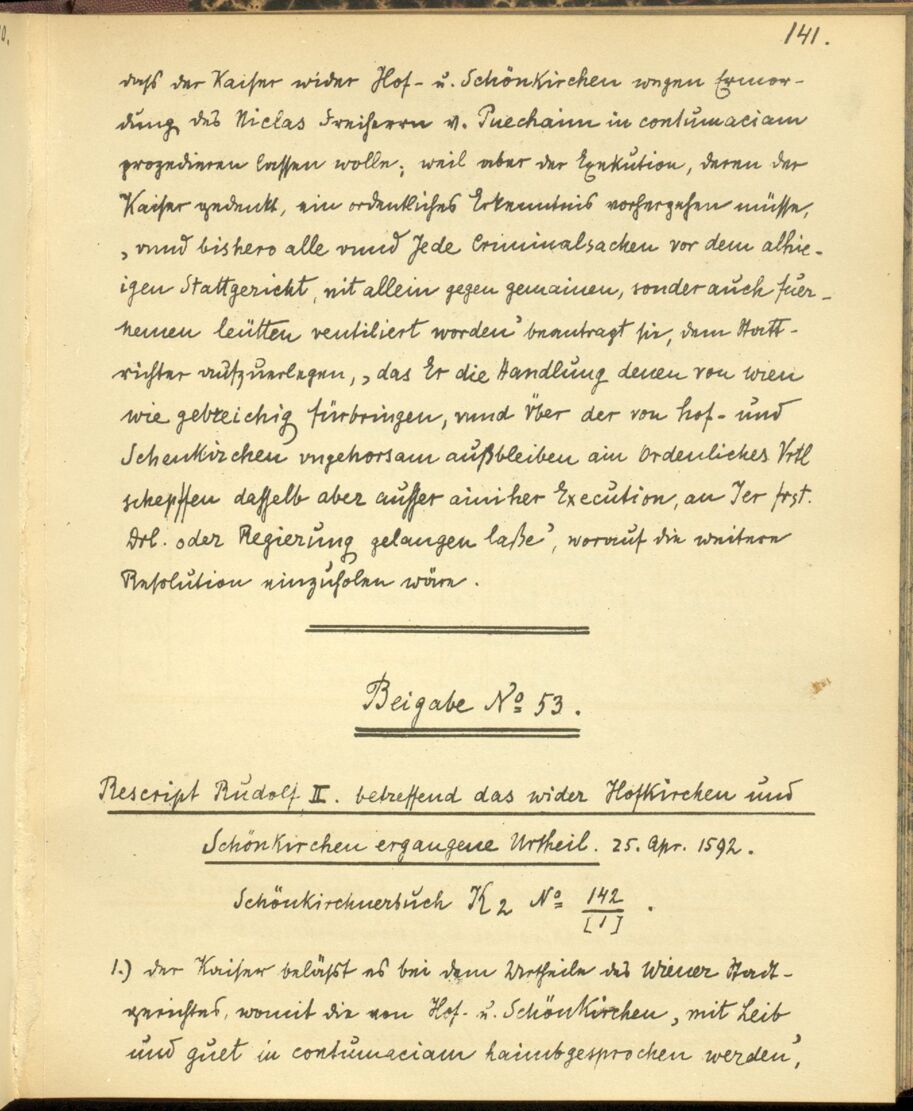 141.
daß der Kaiser wider Hof- u. Schönkirchen wegen Ermor-
dung des Niclas Freiherrn v. Puechaim in contumaciam
prozedieren lassen wolle; weil aber der Exekution, deren der
Kaiser gedenkt, ein ordentliches Erkenntnis vorhergehen müsse,
„vnnd bishero alle vnnd Jede Criminalsachen vor dem alhie-
igen Stattgericht, nit allein gegen gemainen, sonder auch fuer-
nemen leütten ventiliert worden‟ beantragt sie, dem Statt-
richter aufzuerlegen, „das Er die Handlung denen von wien
wie gebreichig fürbringen, vnnd Über der von hof- und
Schenkirchen vngehorsam außbleiben ain Ordenliches Vrtl
schepffen dasselb aber ausser ainiher Execution, an Ier frst.
Drl. oder Regierung gelangen laße‟, worauf die weitere
Resolution einzuholen wäre.
Beigabe No 53.
Rescript Rudolf II. betreffend das wider Hofkirchen und
Schönkirchen ergangene Urtheil. 25. Apr. 1592.
Schönkirchnerbuch K2 No 142/[1].
1.) der Kaiser beläßt es bei dem Urtheile des Wiener Stadt-
gerichtes, womit die von Hof- u. Schönkirchen „mit Leib
und guet in contumaciam haimbgesprochen werden‟,